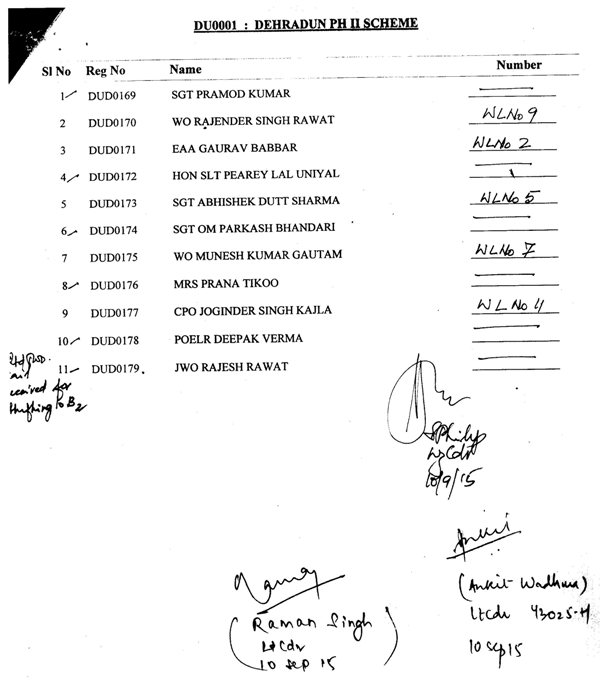 DU0001 : DEHRADUN PH II SCHEME
Sl No Reg No Name Number
1 DUD0169 SGT PRAMOD KUMAR
2 DUD0170 WO RAJENDER SINGH RAWAT WLNo 9
3 DUD0171 EAA GAURAV BABBAR WLNo 2
4 DUD0172 HON SLT PEAREY LAL UNIYAL
5 DUD0173 SGT ABHISHEK DUTT SHARMA WLNo 5
6 DUD0174 SGT OM PARKASH BHANDARI
7 DUD0175 WO MUNESH KUMAR GAUTAM WLNo 7
8 DUD0176 MRS PRANA TIKOO
9 DUD0177 CPO JOGINDER SINGH KAJLA WLNo 4
10 DUD0178 POELR DEEPAK VERMA
11 DUD0179. JWO RAJESH RAWAT
for
to B2
SPhilip
Wg Cdr
10/9/15
Ankit
(Ankit Wadhwa)
Lt Cdr 43025-H
10 Sep 15
Raman
(Raman Singh
Lt Cdr
10 Sep 15)